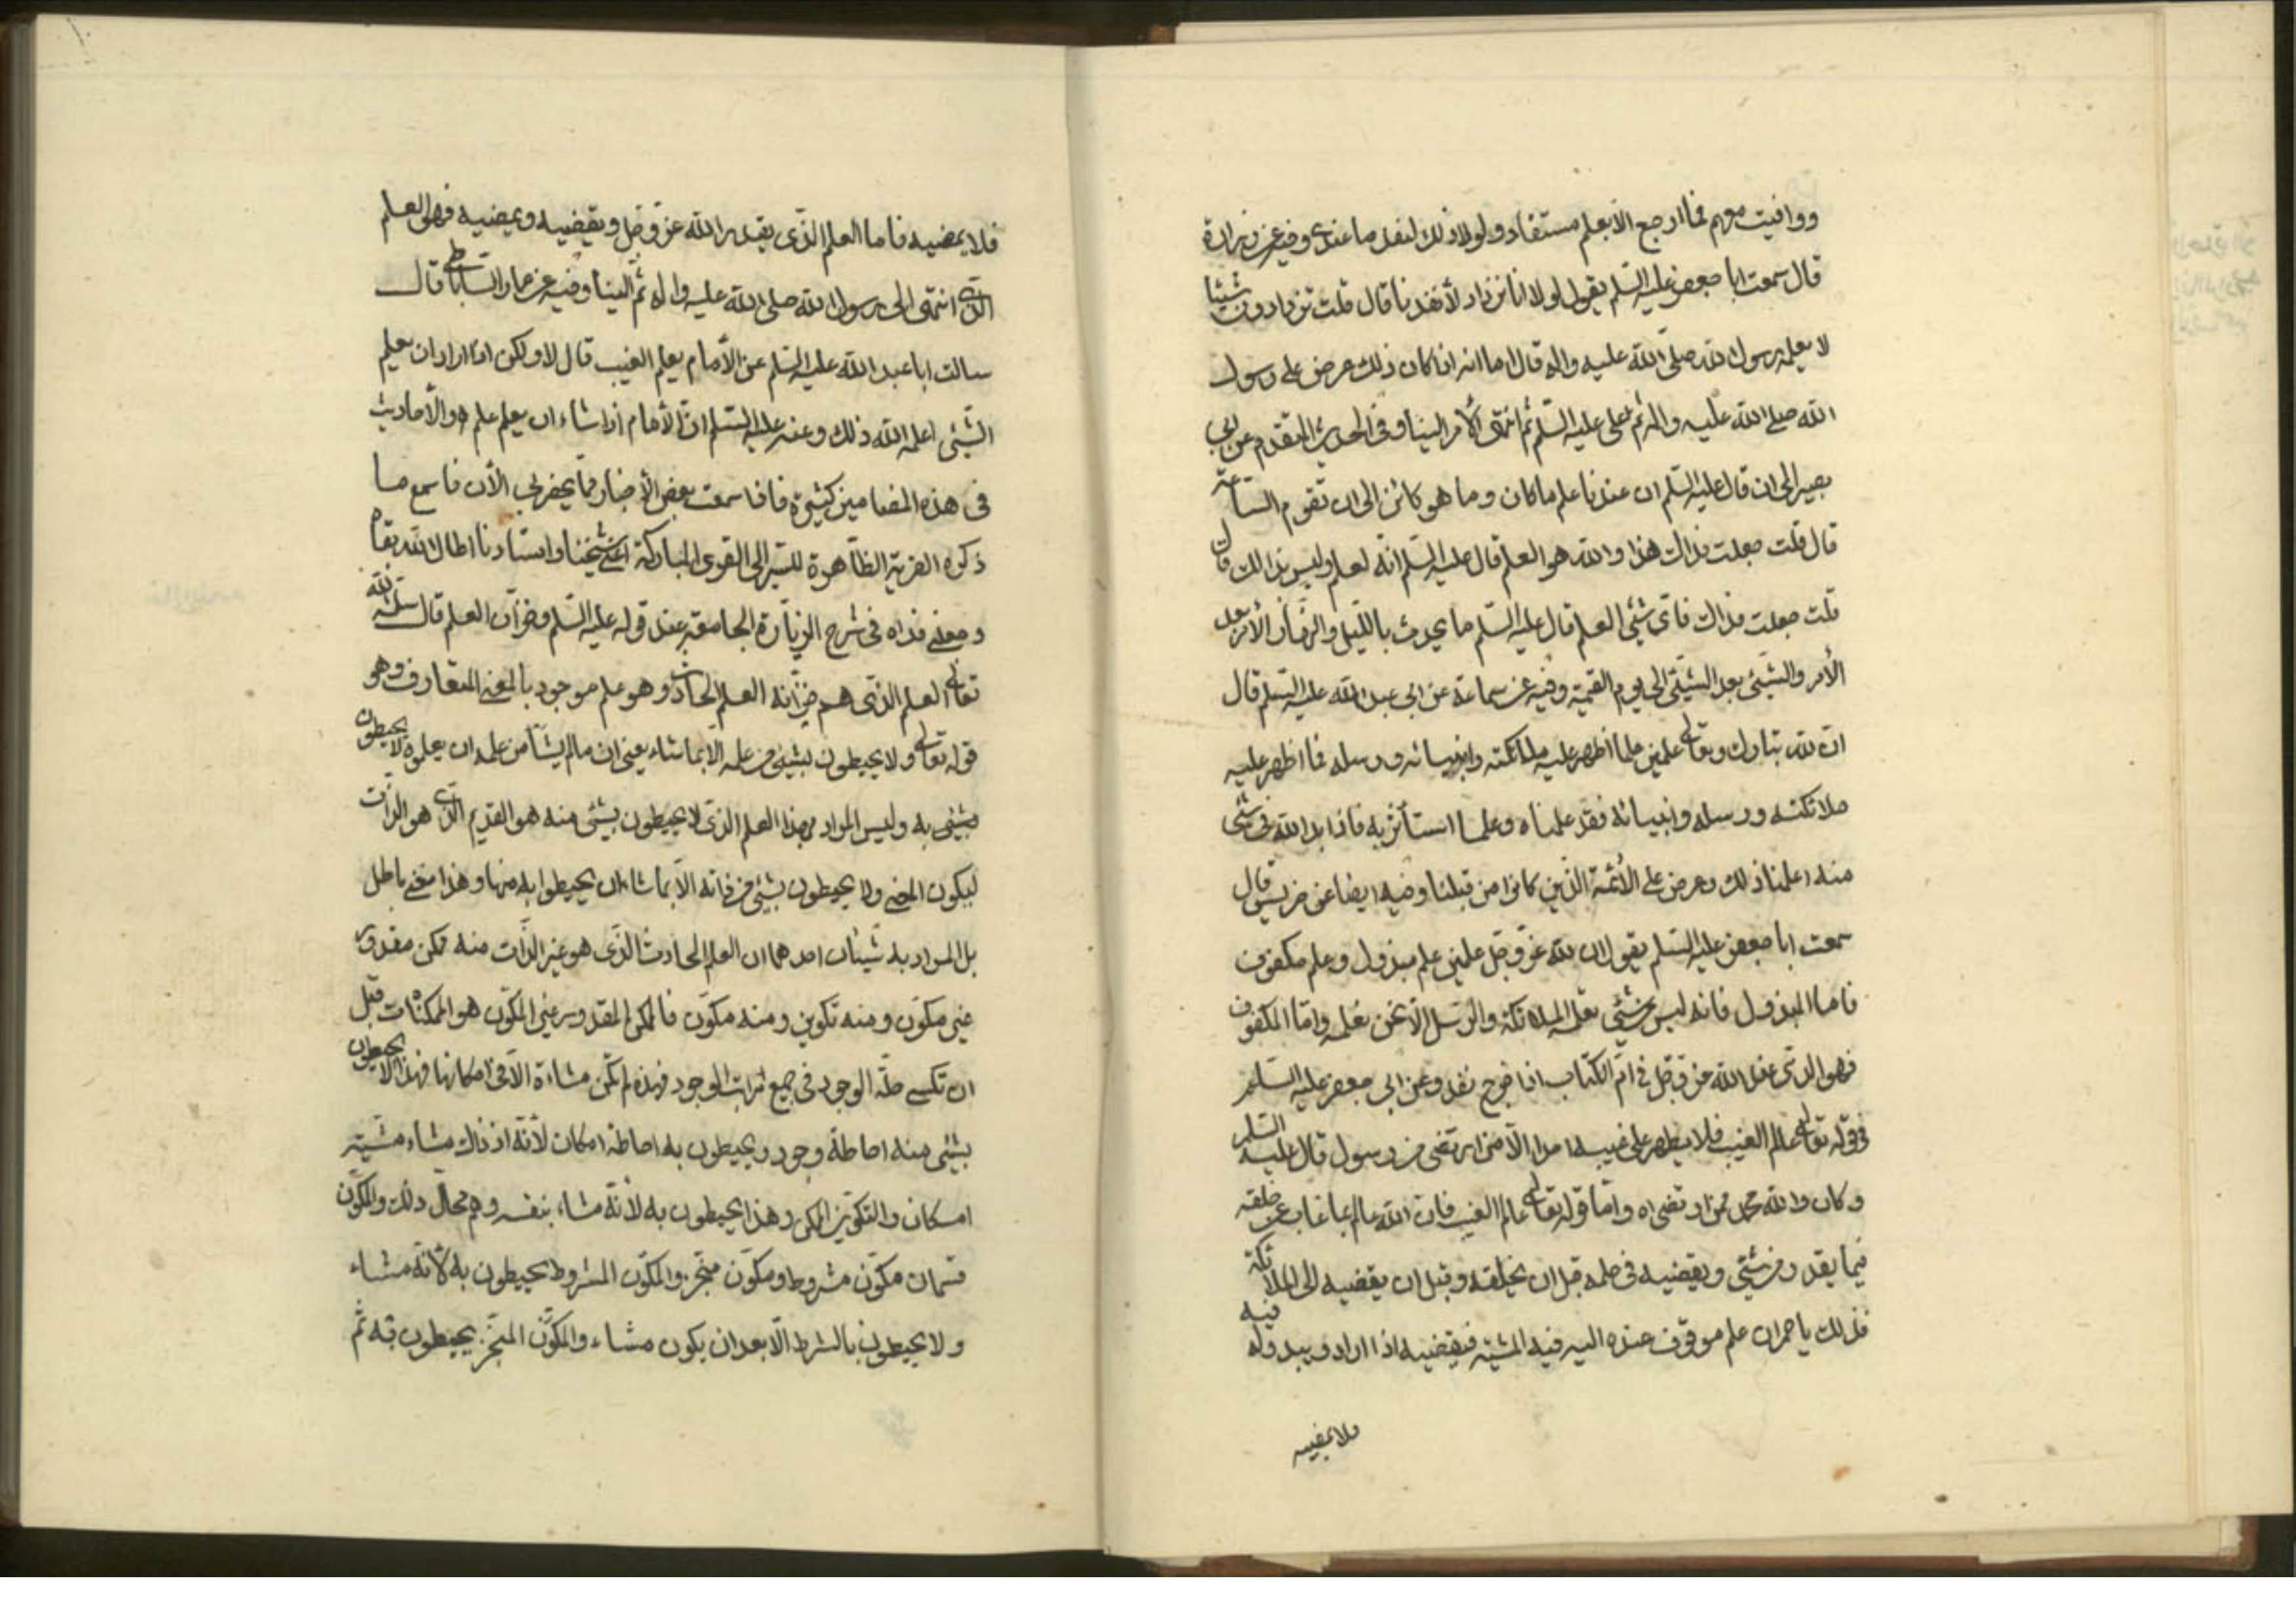 ووافيت معهم فما ارجع الا بعلم مستفاد ولولا ذلك لنفد ما عندي وفيه عن زرارة
قال سمعت ابا جعفر عليه السلم يقول لولا انا نزداد لأنفدنا قال قلت تزدادون شيئا
لا يعلمه رسول الله صلى الله عليه واله قال اما انه اذا كان ذلك عرض على رسول
الله صلى الله عليه واله ثم على علي عليه السلم ثم انتهى الأمر الينا وفي الحديث المتقدم عن ابي
بصير الى ان قال عليه السلم ان عندنا علم ما كان وما هو كائن الى ان تقوم الساعة
قال قلت جعلت فداك هذا والله هو العلم قال عليه السلم انه لعلم وليس بذالك قال
قلت جعلت فداك فاى شيئ العلم قال عليه السلم ما يحدث بالليل والنهار الأمر بعد
الأمر والشيئ بعد الشيئ الى يوم القيمة وفيه عن سماعة عن ابي عبد الله عليه السلم قال
ان لله تبارك وتعالى علمين علما اظهر عليه ملائكته وانبيائه ورسله فما اظهر عليه
ملائكته ورسله وانبيائه فقد علمناه وعلما استأثر به فاذا بدا لله في شئ
منه اعلمنا ذلك وعرض على الأئمة الذين كانوا من قبلنا وفيه ايضا عن ضريس قال
سمعت ابا جعفر عليه السلم يقول ان لله عز وجل علمين علم مبذول وعلم مكفوف
فاما المبذول فانه ليس من شئي تعلمه الملائكة والرسل الا نحن نعلمه واما المكفوف
فهو الذى عند الله عز وجل في ام الكتاب اذا خرج نفد وعن ابي جعفر عليه السلم
في قوله تعالى عالم الغيب فلا يظهر على غيبه احدا الا من ارتضى من رسول قال عليه السلم
وكان والله محمد ممن ارتضاه واما قوله تعالى عالم الغيب فان الله عالم بما غاب عن خلقه
فيما يقدر من شيئي ويقضيه في علمه قبل ان يخلقه وقبل ان يقضيه الى الملائكة
فذلك يا حمران علم موقوف عنده اليه فيه المشية فيقضيه اذا اراد ويبدو له فيه
فلا يمضيه
فلا يمضيه فاما العلم الذى يقدره الله عز وجل ويقضيه ويمضيه فهو العلم
الذى انتهى الى رسول الله صلى الله عليه واله ثم الينا وفيه عن عمار الساباطي قال
سالت ابا عبد الله عليه السلم عن الأمام يعلم الغيب قال لا ولكن اذا اراد ان يعلم
الشيئ اعلمه الله ذلك وعنه عليه السلم ان الأمام اذا شاء ان يعلم علم والأحاديث
فى هذه المضامين كثيرة فاذا سمعت بعض الأخبار مما يحضرني الأن فاسمع ما
ذكره القرية الظاهرة للسير الى القرى المباركة اعني شيخنا واستادنا اطال الله بقاه
وجعلني فداه فى شرح الزيارة الجامعة عند قوله عليه السلم وخزان العلم قال سلمه الله
تعالى العلم الذى هم خزانه العلم الحادث وهو علم موجود بالمعنى المتعارف وهو
قوله تعالى ولا يحيطون بشيئ من علمه الا بما شاء يعني ان ما لم يشأ من علمه ان يعلموه لا يحيطون
بشيئ به وليس المراد بهذا العلم الذى لا يحيطون بشيئ منه هو القديم الذى هو الذات
ليكون المعنى ولا يحيطون بشيئ من ذاته الا بما شاء ان يحيطوا به منها وهذا معنى باطل
بل المراد به شيئان احدهما ان العلم الحادث الذى هو غير الذات منه ممكن مقدور
غير مكون ومنه تكوين ومنه مكون فالممكن المقدور غير المكون هو الممكنات قبل
ان تكسى حلة الوجود فى جميع مراتب الوجود فهذه لم تكن مشاءة الا فى امكانها فهذا لا يحيطون
بشيئ منه احاطة وجود ويحيطون به احاطة امكان لأنه اذ ذاك مشاء مشية
امكان والتكوين الممكن وهذا يحيطون به لأنه مشاء بنفسه وهم محال ذلك والمكون
قسمان مكون مشروط ومكون منجز والمكون المشروط يحيطون به لأنه مشاء
ولا يحيطون بالشرط الا بعد ان يكون مشاء والمكون المنجز يحيطون به ثم